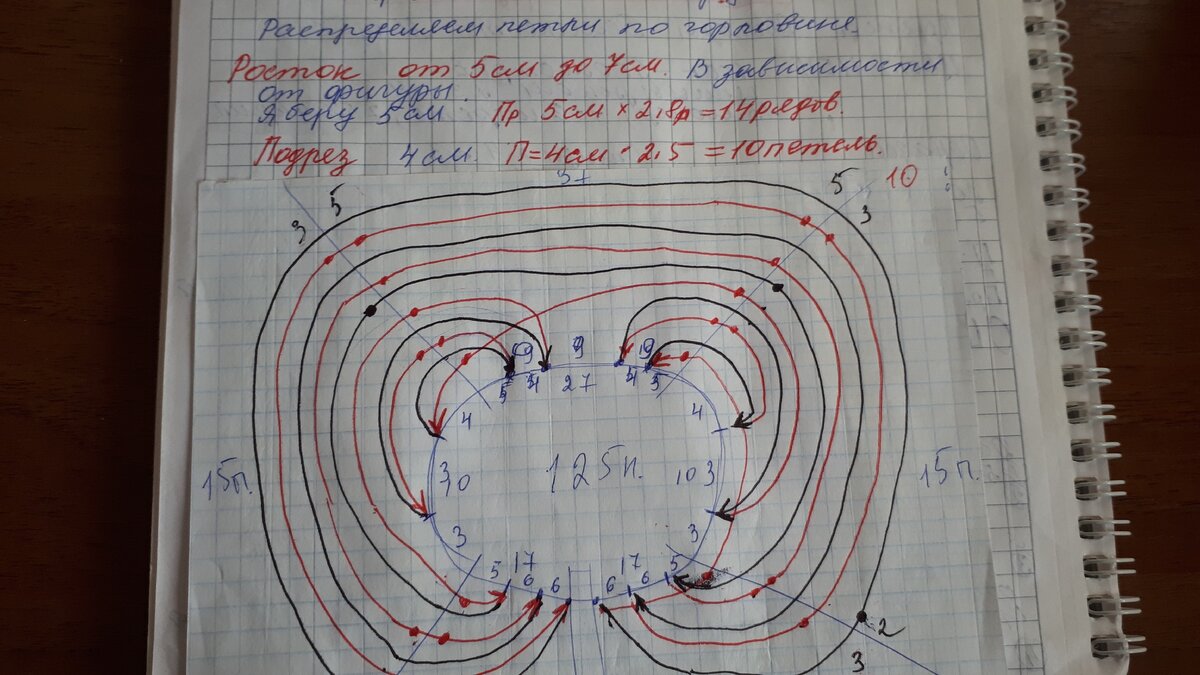 Распределяем петли по горловине.
Росток от 5см до 7см. В зависимости
от фигуры.
Я беру 5см Пр 5см × 2,8р = 14рядов.
Подрез 4см. П=4см · 2,5 = 10петель.
5 5 10
3 3
9 9 19
5 4 27 4 3
4 4
15п. 30 125п. 10 3 15п.
3 3
5 17 17 5
6 6 6 6
2
3